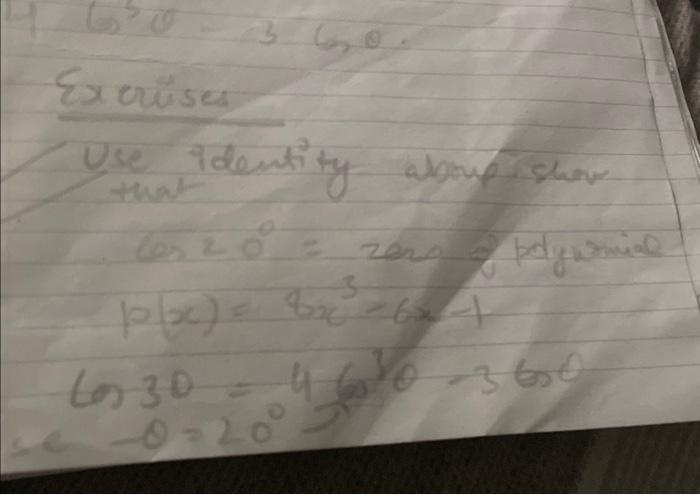 4 cos³θ - 3 cosθ.
Exercises
Use identity above show
that
cos 20° = zero of polynomial
p(x) = 8x³ - 6x - 1
cos 3θ = 4 cos³θ - 3 cosθ
θ = 20°